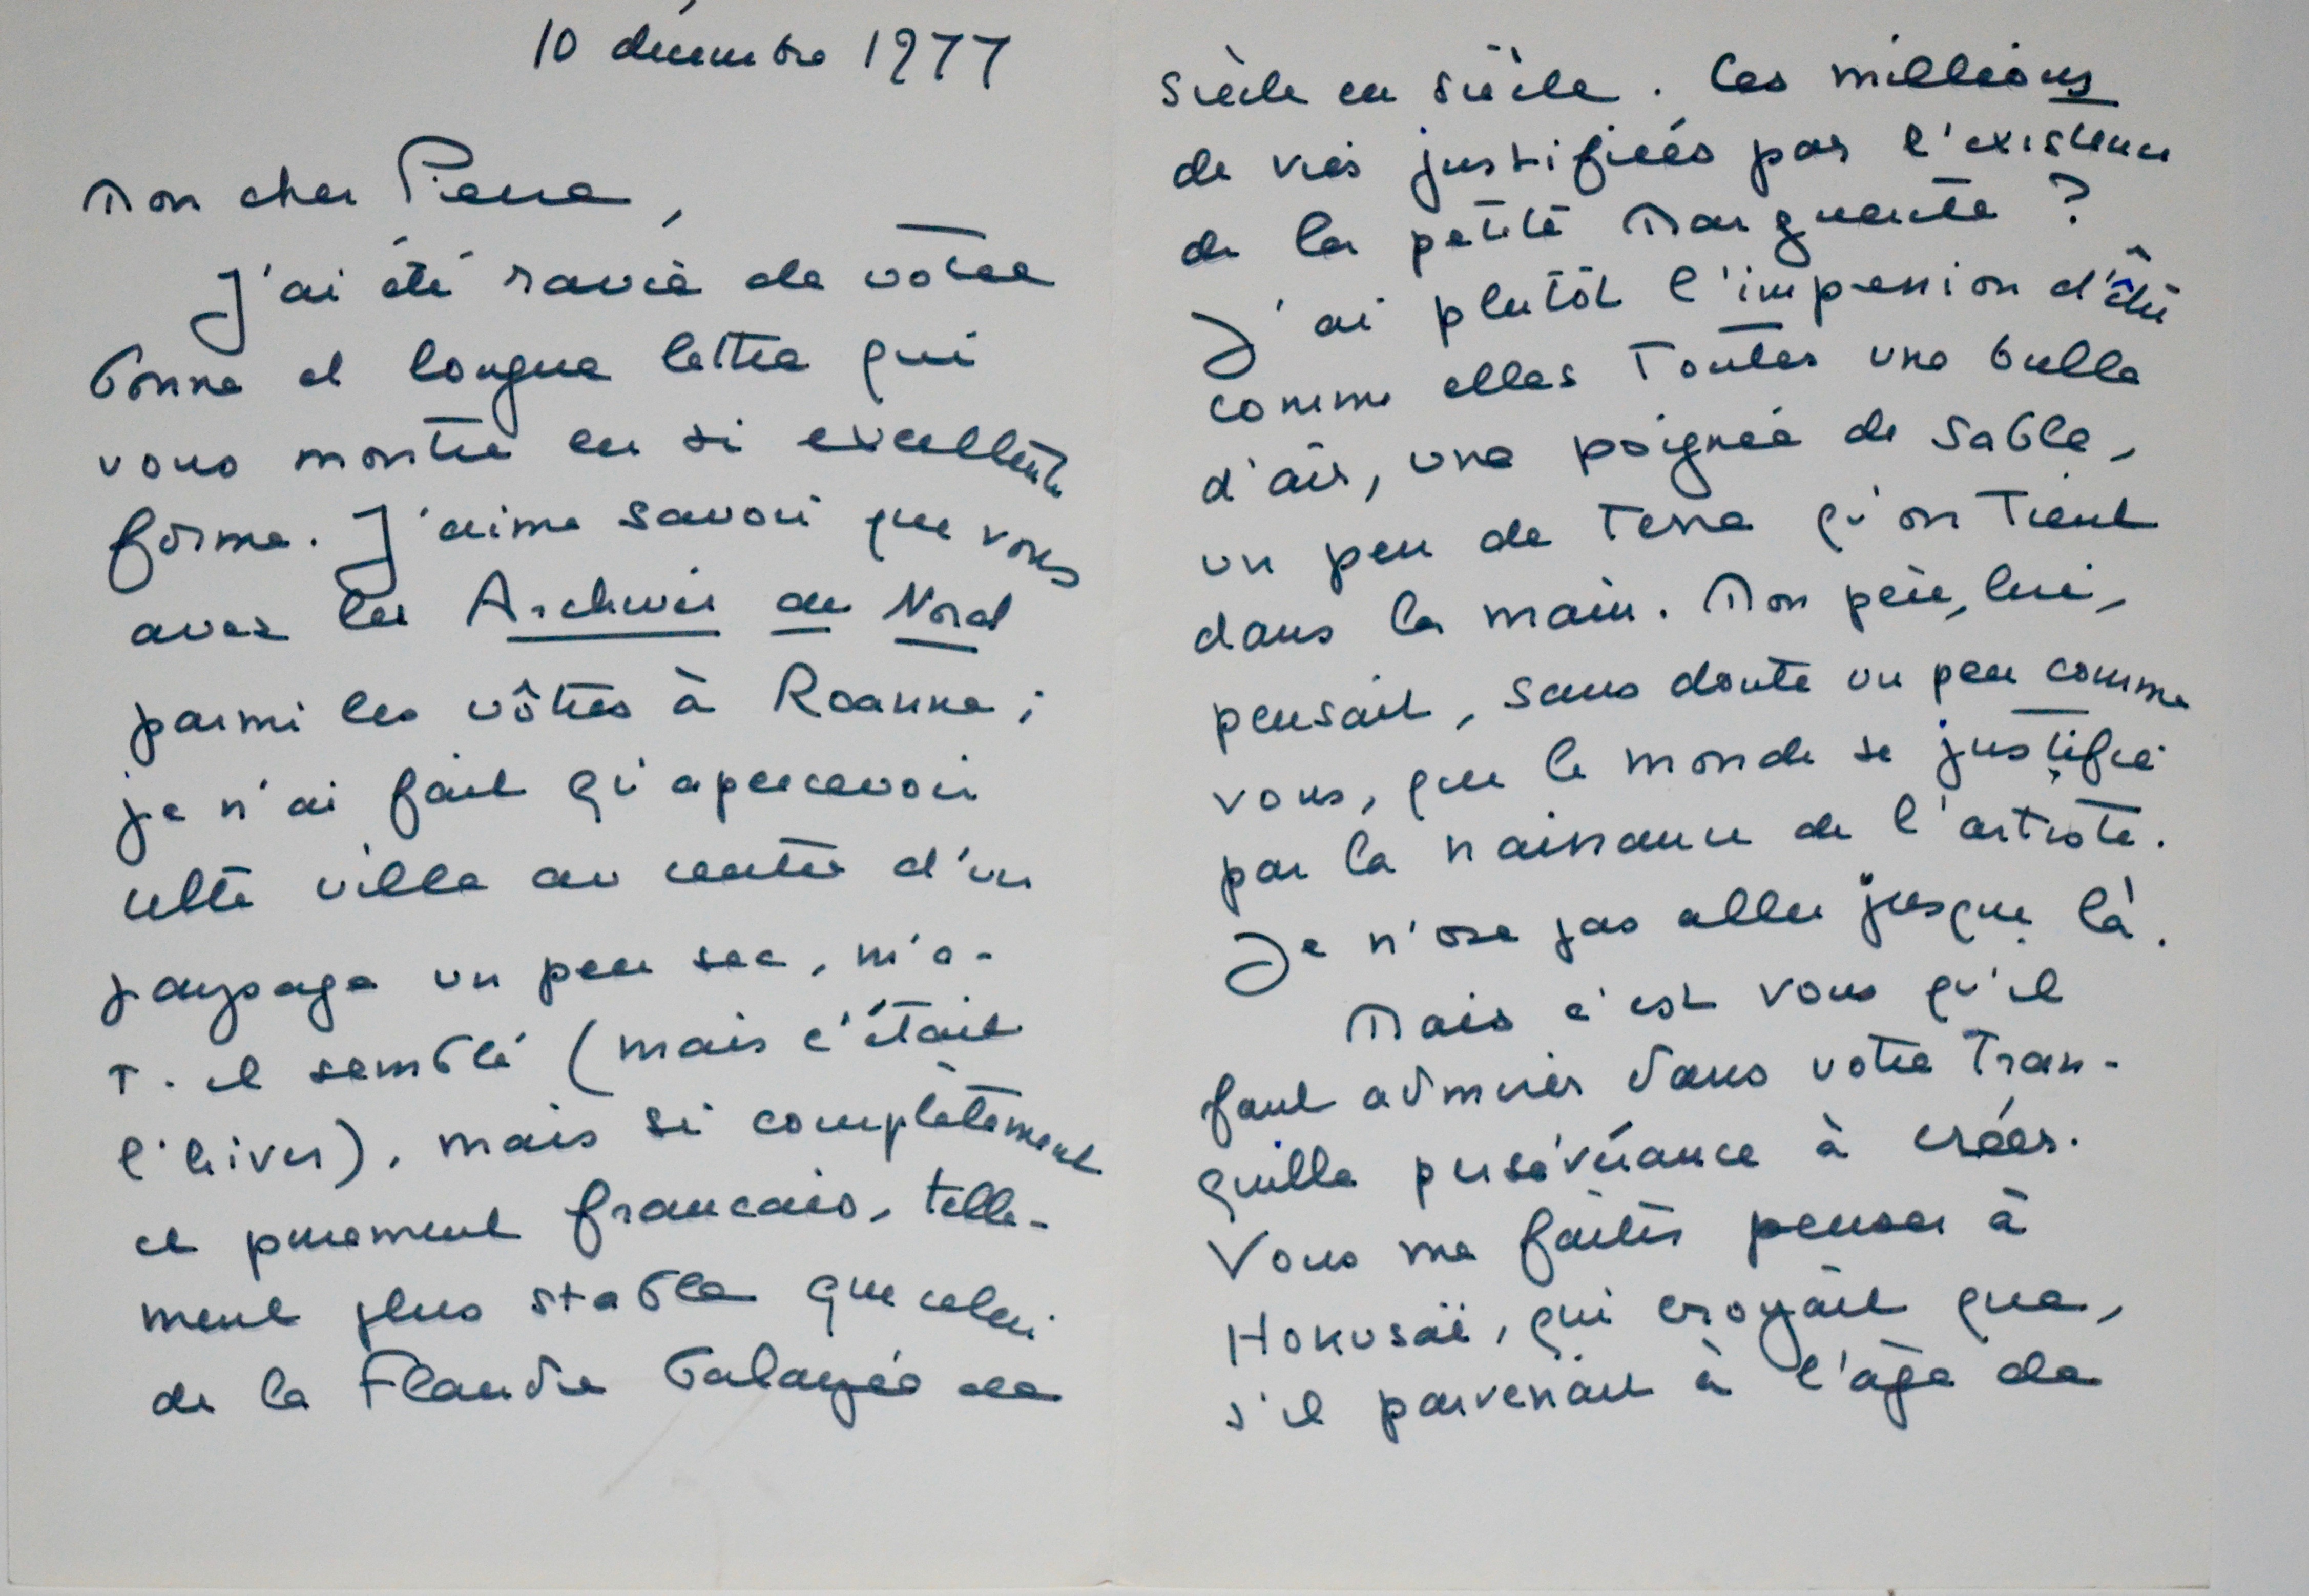 10 décembre 1977
Mon cher Pierre,
J'ai été ravie de votre
bonne et longue lettre qui
vous montre en si excellente
forme. J'aime savoir que vous
avez lu Archives du Nord
parmi les vôtres à Roanne ;
je n'ai fait qu'apercevoir
cette ville au centre d'un
paysage un peu sec, m'a-
t-il semblé (mais c'était
l'hiver), mais si complètement
et purement francais, telle-
ment plus stable que celui
de la Flandre balayée de
siècle en siècle. Ces millions
de vies justifiées par l'existence
de la petite Marguerite ?
J'ai plutôt l'impression d'être
comme elles toutes une bulle
d'air, une poignée de sable,
un peu de terre qu'on tient
dans la main. Mon père, lui,
pensait, sans doute un peu comme
vous, que le monde se justifie
par la naissance de l'artiste.
Je n'ose pas aller jusque là.
Mais c'est vous qu'il
faut admirer dans votre tran-
quille persévérance à créer.
Vous me faites penser à
Hokusaï, qui croyait que,
s'il parvenait à l'âge de